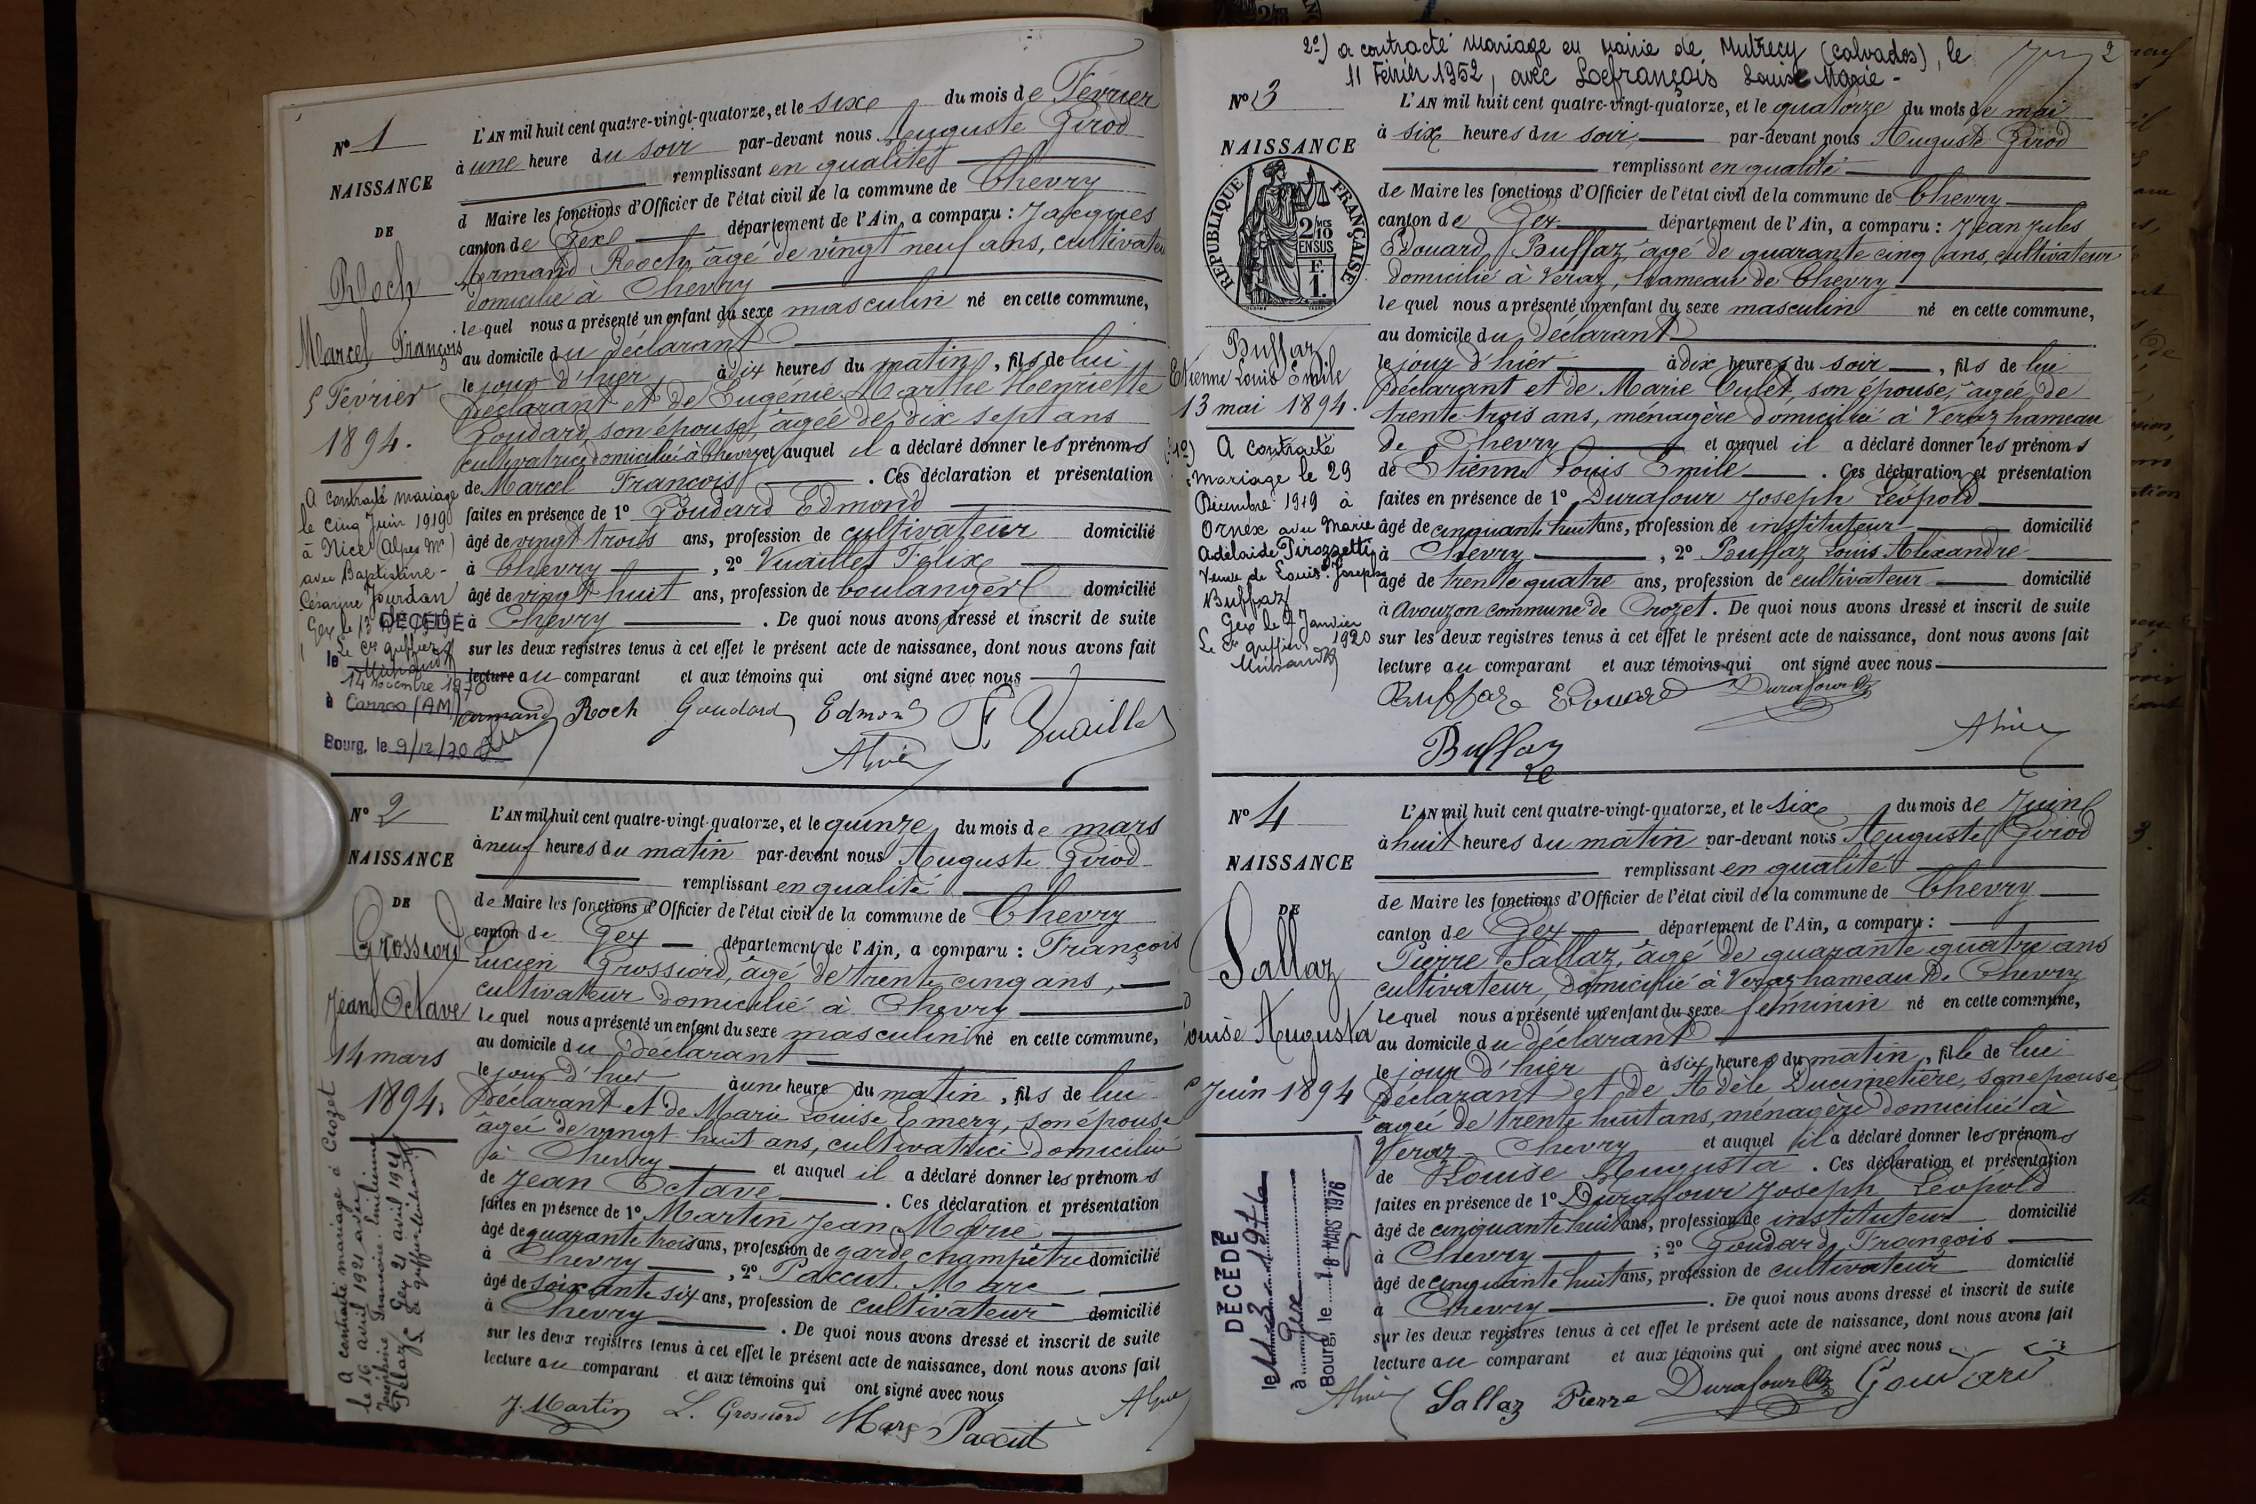 Nº 1
NAISSANCE
DE
Roch
Marcel François
5 Février
1894.
A contracté mariage
le cinq Juin 1919
à Nice (Alpes Mes)
avec Baptistine-
Césarine Jourdan
Gex le 13
Le Cs greffier
DÉCÉDÉ
le 14 décembre 1970
à Carros (AM)
Bourg, le 9/12/70
L'AN mil huit cent quatre-vingt-quatorze, et le six du mois de Février
à une heure du soir par-devant nous Auguste Girod
remplissant en qualité
d Maire les fonctions d'Officier de l'état civil de la commune de Chevry
canton de Gex département de l'Ain, a comparu : Jacques
Armand Roch, âgé de vingt neuf ans, cultivateur
domicilié à Chevry
lequel nous a présenté un enfant du sexe masculin né en cette commune,
au domicile du déclarant
le jour d'hier à dix heures du matin, fils de lui
Déclarant et de Eugénie Marthe Henriette
Goudard, son épouse, âgée de dix sept ans
cultivatrice domiciliée à Chevry et auquel il a déclaré donner les prénoms
de Marcel François . Ces déclaration et présentation
faites en présence de 1º Goudard Edmond
âgé de vingt trois ans, profession de cultivateur domicilié
à Chevry , 2º Vuaillet Félix
âgé de vingt huit ans, profession de boulanger domicilié
à Chevry . De quoi nous avons dressé et inscrit de suite
sur les deux registres tenus à cet effet le présent acte de naissance, dont nous avons fait
lecture au comparant et aux témoins qui ont signé avec nous
Armand Roch Goudard Edmond F. Vuaillet
Nº 2
NAISSANCE
DE
Grossiord
Jean Octave
14 mars
1894.
A contracté mariage à Crozet
le 16 avril 1921 avec
Joséphine Francine Emilienne
Pélaz Gex 21 avril 1921
Le greffier
L'AN mil huit cent quatre-vingt-quatorze, et le quinze du mois de mars
à neuf heures du matin par-devant nous Auguste Girod
remplissant en qualité
de Maire les fonctions d'Officier de l'état civil de la commune de Chevry
canton de Gex département de l'Ain, a comparu : François
Lucien Grossiord, âgé de trente cinq ans,
cultivateur domicilié à Chevry
lequel nous a présenté un enfant du sexe masculin né en cette commune,
au domicile du Déclarant
le jour d'hier à une heure du matin, fils de lui
Déclarant et de Marie Louise Emery, son épouse
âgée de vingt huit ans, cultivatrice domiciliée
à Chevry et auquel il a déclaré donner les prénoms
de Jean Octave . Ces déclaration et présentation
faites en présence de 1º Martin Jean Marie
âgé de quarante trois ans, profession de garde champêtre domicilié
à Chevry , 2º Paccut Marc
âgé de soixante six ans, profession de cultivateur domicilié
à Chevry . De quoi nous avons dressé et inscrit de suite
sur les deux registres tenus à cet effet le présent acte de naissance, dont nous avons fait
lecture au comparant et aux témoins qui ont signé avec nous
J. Martin L. Grossiord Marc Paccut
2º) a contracté mariage en mairie de Mutrecy (Calvados), le
11 Février 1952, avec Lefrançois Louise Marie-
2
Nº 3
NAISSANCE
RÉPUBLIQUE FRANÇAISE
2/10
EN SUS
F.
1.
Buffaz
Etienne Louis Emile
13 mai 1894.
1º) A contracté
mariage le 29
Décembre 1919 à
Ornex avec Marie
Adélaïde Pirozzetti
Veuve de Louis Joseph
Buffaz
Gex le 7 Janvier
1920
Le Cs greffier
L'AN mil huit cent quatre-vingt-quatorze, et le quatorze du mois de mai
à six heures du soir par-devant nous Auguste Girod
remplissant en qualité
de Maire les fonctions d'Officier de l'état civil de la commune de Chevry
canton de Gex département de l'Ain, a comparu : Jean Jules
Edouard Buffaz, âgé de quarante cinq ans, cultivateur
domicilié à Véraz, hameau de Chevry
lequel nous a présenté un enfant du sexe masculin né en cette commune,
au domicile du déclarant
le jour d'hier à dix heures du soir , fils de lui
Déclarant et de Marie Culet, son épouse, âgée de
trente-trois ans, ménagère domiciliée à Veraz hameau
de Chevry et auquel il a déclaré donner les prénoms
de Etienne Louis Emile . Ces déclaration et présentation
faites en présence de 1º Durafour Joseph Léopold
âgé de cinquante huit ans, profession de instituteur domicilié
à Chevry , 2º Buffaz Louis Alexandre
âgé de trente quatre ans, profession de cultivateur domicilié
à Avouzon commune de Crozet. De quoi nous avons dressé et inscrit de suite
sur les deux registres tenus à cet effet le présent acte de naissance, dont nous avons fait
lecture au comparant et aux témoins qui ont signé avec nous
Buffaz Edouard Durafour
Buffaz
Nº 4
NAISSANCE
DE
Sallaz
Louise Augusta
5 Juin 1894
DÉCÉDÉ
le 11.3.1976
à Gex
Bourg, le 18 MARS 1976
L'AN mil huit cent quatre-vingt-quatorze, et le six du mois de Juin
à huit heures du matin par-devant nous Auguste Girod
remplissant en qualité
de Maire les fonctions d'Officier de l'état civil de la commune de Chevry
canton de Gex département de l'Ain, a comparu :
Pierre Sallaz, âgé de quarante quatre ans
cultivateur, domicilié à Veraz hameau de Chevry
lequel nous a présenté un enfant du sexe féminin né en cette commune,
au domicile du déclarant
le jour d'hier à six heures du matin, fille de lui
Déclarant et de Adèle Ducimetière, son épouse
âgée de trente huit ans, ménagère domiciliée à
Veraz Chevry et auquel il a déclaré donner les prénoms
de Louise Augusta . Ces déclaration et présentation
faites en présence de 1º Durafour Joseph Léopold
âgé de cinquante huit ans, profession de instituteur domicilié
à Chevry ; 2º Goudard François
âgé de cinquante huit ans, profession de cultivateur domicilié
à Chevry . De quoi nous avons dressé et inscrit de suite
sur les deux registres tenus à cet effet le présent acte de naissance, dont nous avons fait
lecture au comparant et aux témoins qui ont signé avec nous
Sallaz Pierre Durafour Goudard